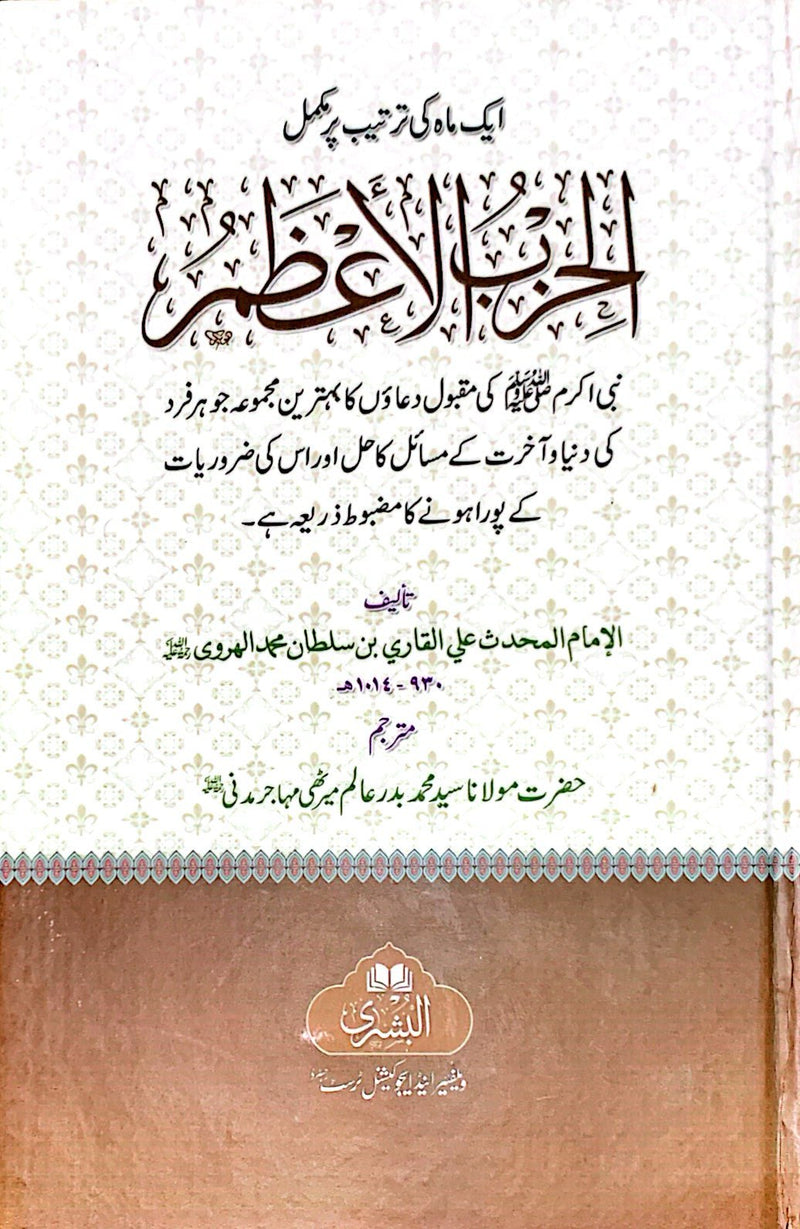 ایک ماہ کی ترتیب پر مکمل
الحِزْبُ الأَعْظَمُ
نبی اکرم ﷺ کی مقبول دعاؤں کا بہترین مجموعہ جو ہر فرد
کی دنیا و آخرت کے مسائل کا حل اور اس کی ضروریات
کے پورا ہونے کا مضبوط ذریعہ ہے۔
تألیف
الإمام المحدث علي القاري بن سلطان محمد الهروی رحمۃ اللہ علیہ
٩٣٠ - ١٠١٤هـ
مترجم
حضرت مولانا سید محمد بدر عالم میرٹھی مہاجر مدنی رحمۃ اللہ علیہ
البُشرى
ویلفیئر اینڈ ایجوکیشنل ٹرسٹ